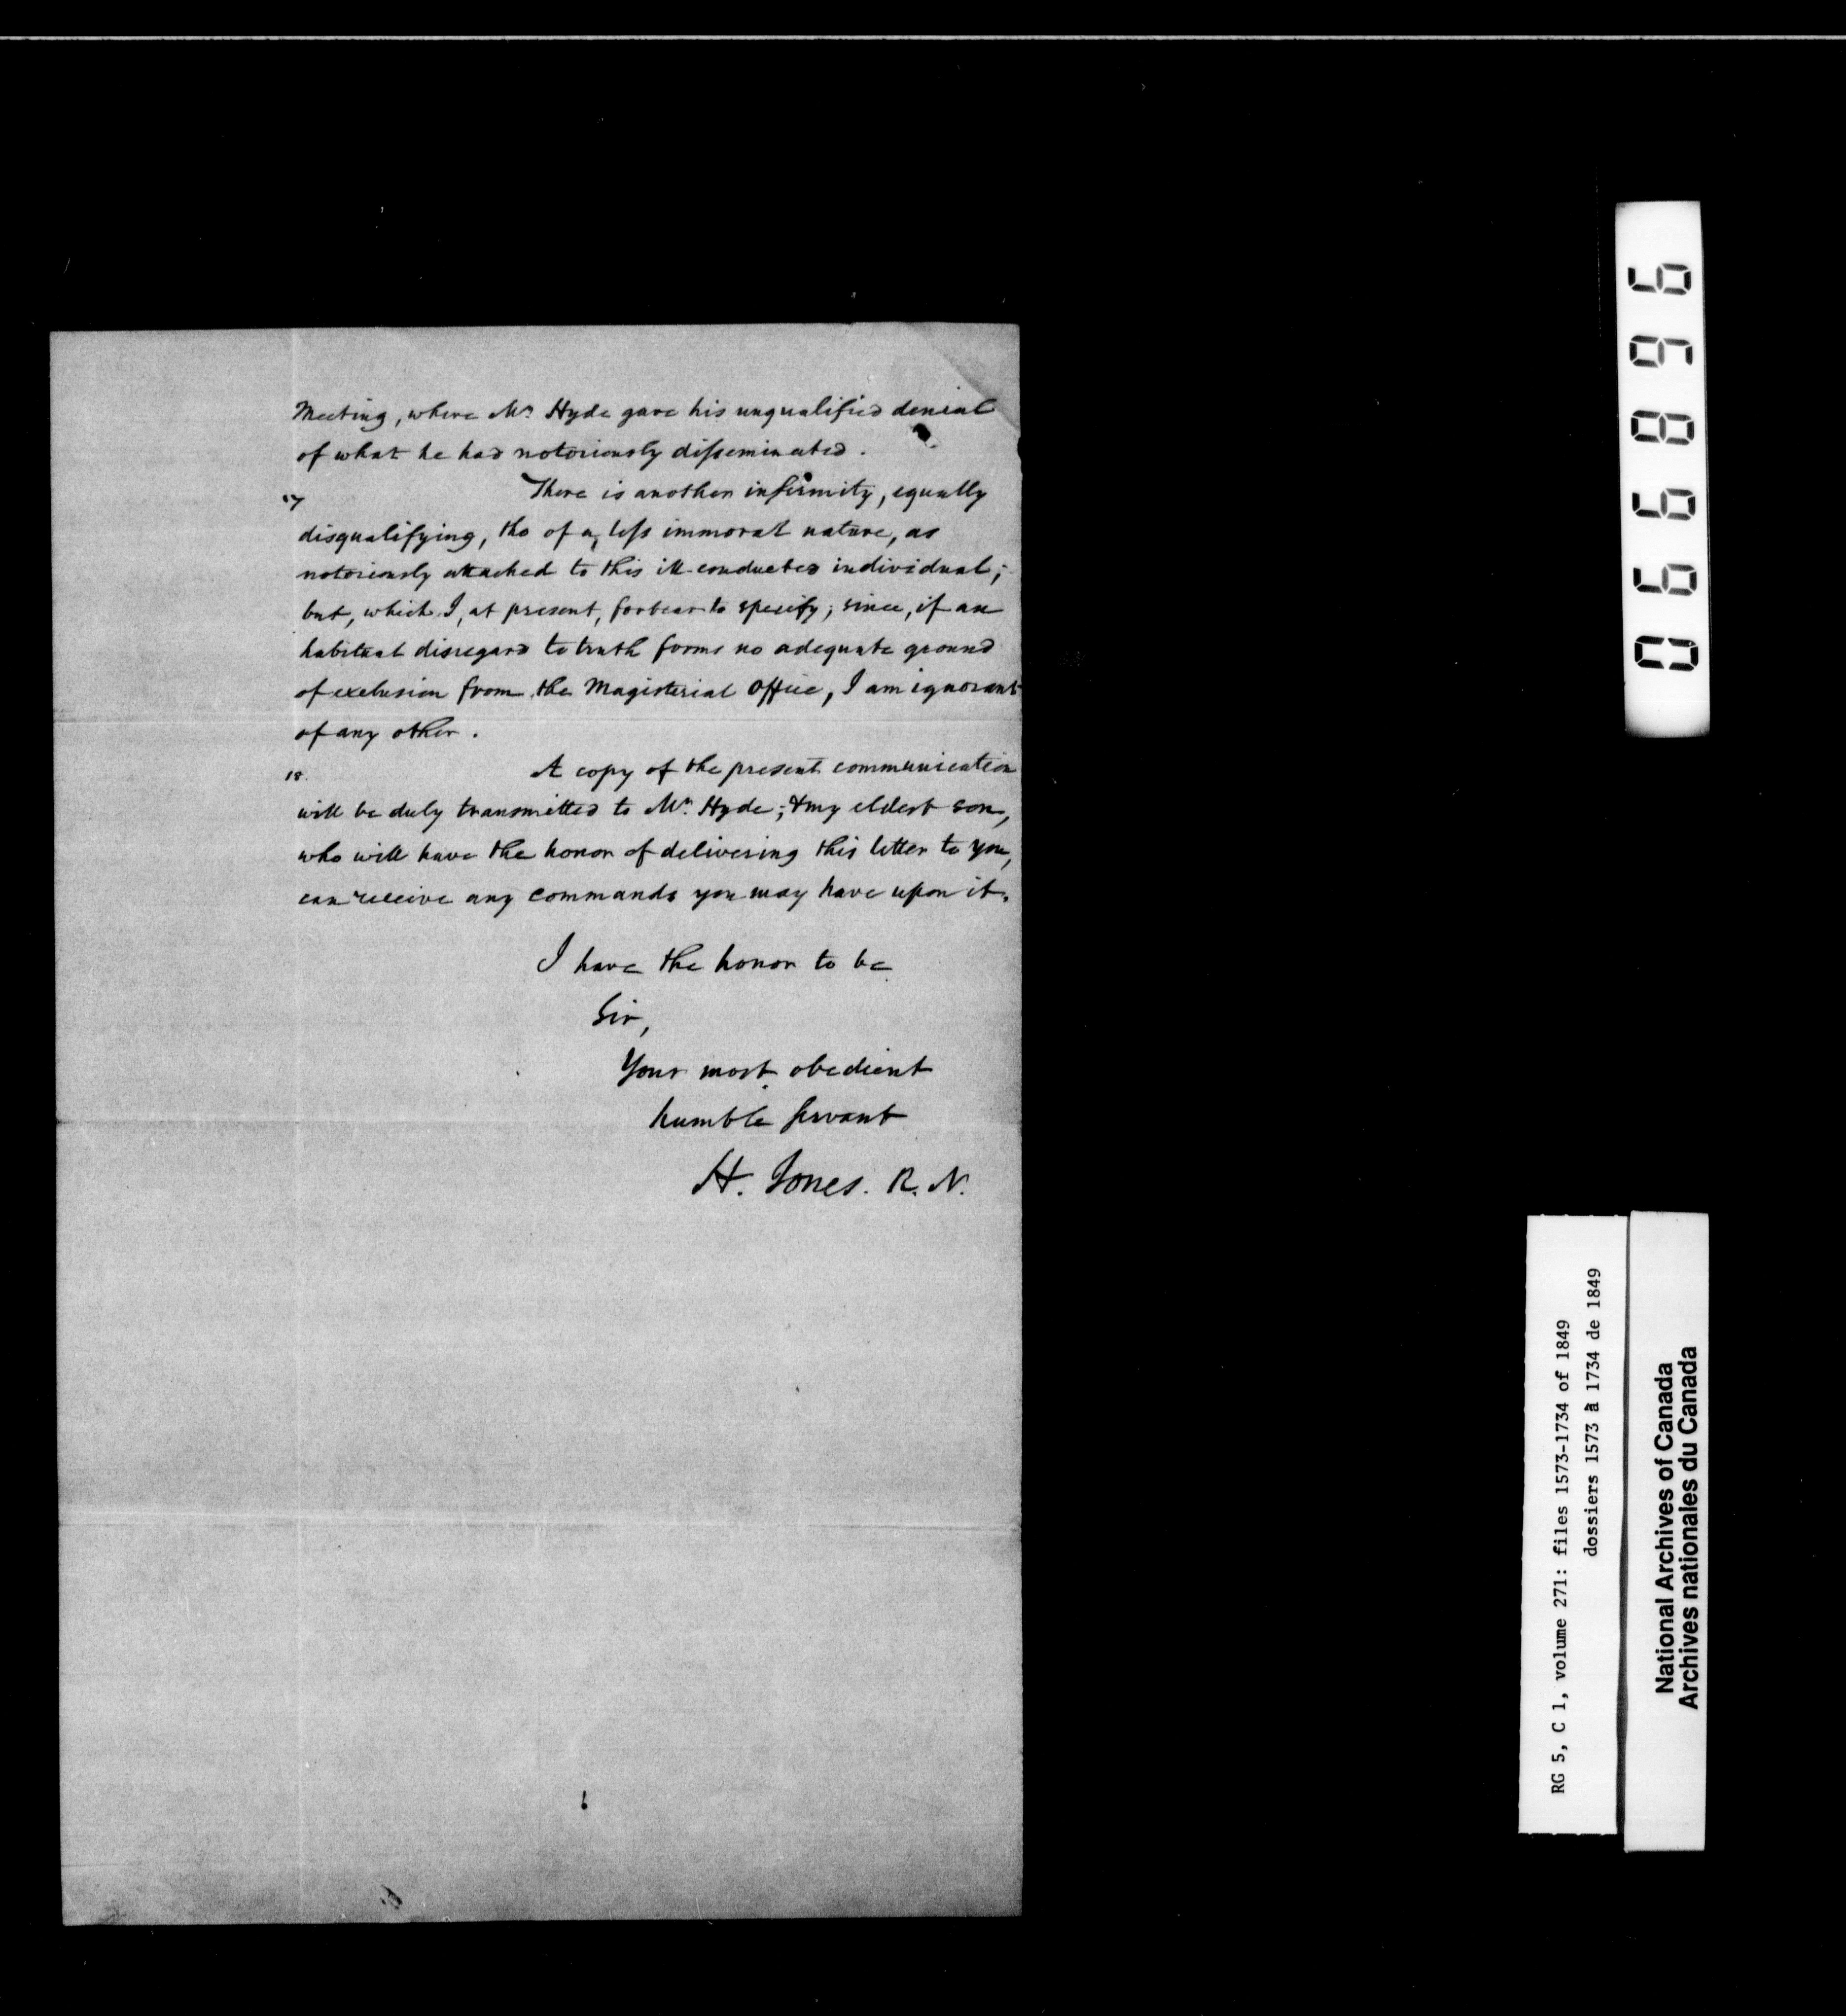 Meeting, where Mr Hyde gave his unqualified denial
of what he had notoriously disseminated.
17
There is another infirmity, equally
disqualifying, tho of a less immoral nature, as
notoriously attached to this ill-conducted individual;
but, which I, at present, forbear to specify; since, if an
habitual disregard to truth forms no adequate ground
of exclusion from the Magisterial Office, I am ignorant
of any other.
18.
A copy of the present communication
will be duly transmitted to Mr. Hyde; & my eldest son,
who will have the honor of delivering this letter to you,
can receive any commands you may have upon it.
I have the honor to be
Sir,
Your most obedient
humble servant
H. Jones. R. N.
066896
RG 5, C 1, volume 271: files 1573-1734 of 1849
dossiers 1573 à 1734 de 1849
National Archives of Canada
Archives nationales du Canada